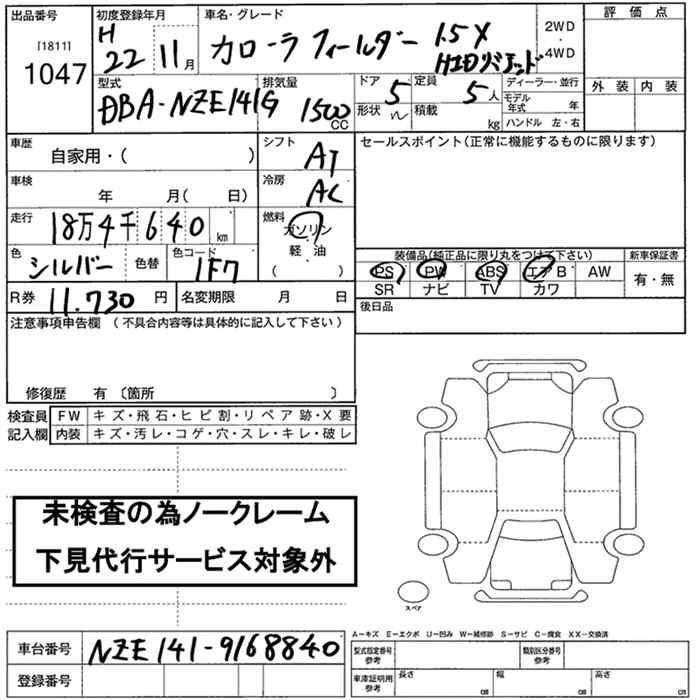 出品番号 初度登録年月 車名・グレード 2WD 評価点
[1811] H カローラ フィールダー 1.5X ・
1047 22 11月 HIDリミテッド 4WD 外装 内装
型式 排気量 ドア 定員 ディーラー・並行
DBA-NZE141G 1500 CC 5 5人 モデル年式 年
形状 積載 kg ハンドル 左・右
車歴 シフト セールスポイント(正常に機能するものに限ります)
自家用・( ) AT
車検 冷房
年 月( 日) AC
走行 燃料
18万4千640 km ガソリン
軽・油
色 色コード ( ) 装備品(純正品に限り丸をつけて下さい) 新車保証書
シルバー 色替 1F7 PS PW ABS エアB AW 有・無
SR ナビ TV カワ
R券 11.730 円 名変期限 月 日 後日品
注意事項申告欄 (不具合内容等は具体的に記入して下さい)
修復歴 有 〔箇所 〕
検査員 FW キズ・飛石・ヒビ割・リペア跡・X要
記入欄 内装 キズ・汚レ・コゲ・穴・スレ・キレ・破レ
未検査の為ノークレーム
下見代行サービス対象外
スペア
A-キズ E-エクボ U-凹み W-補修跡 S-サビ C-腐食 XX-交換済
車台番号 NZE141-9168840 型式指定番号 参考 類別区分番号 参考
登録番号 車庫証明用 参考 長さ cm 幅 cm 高さ cm